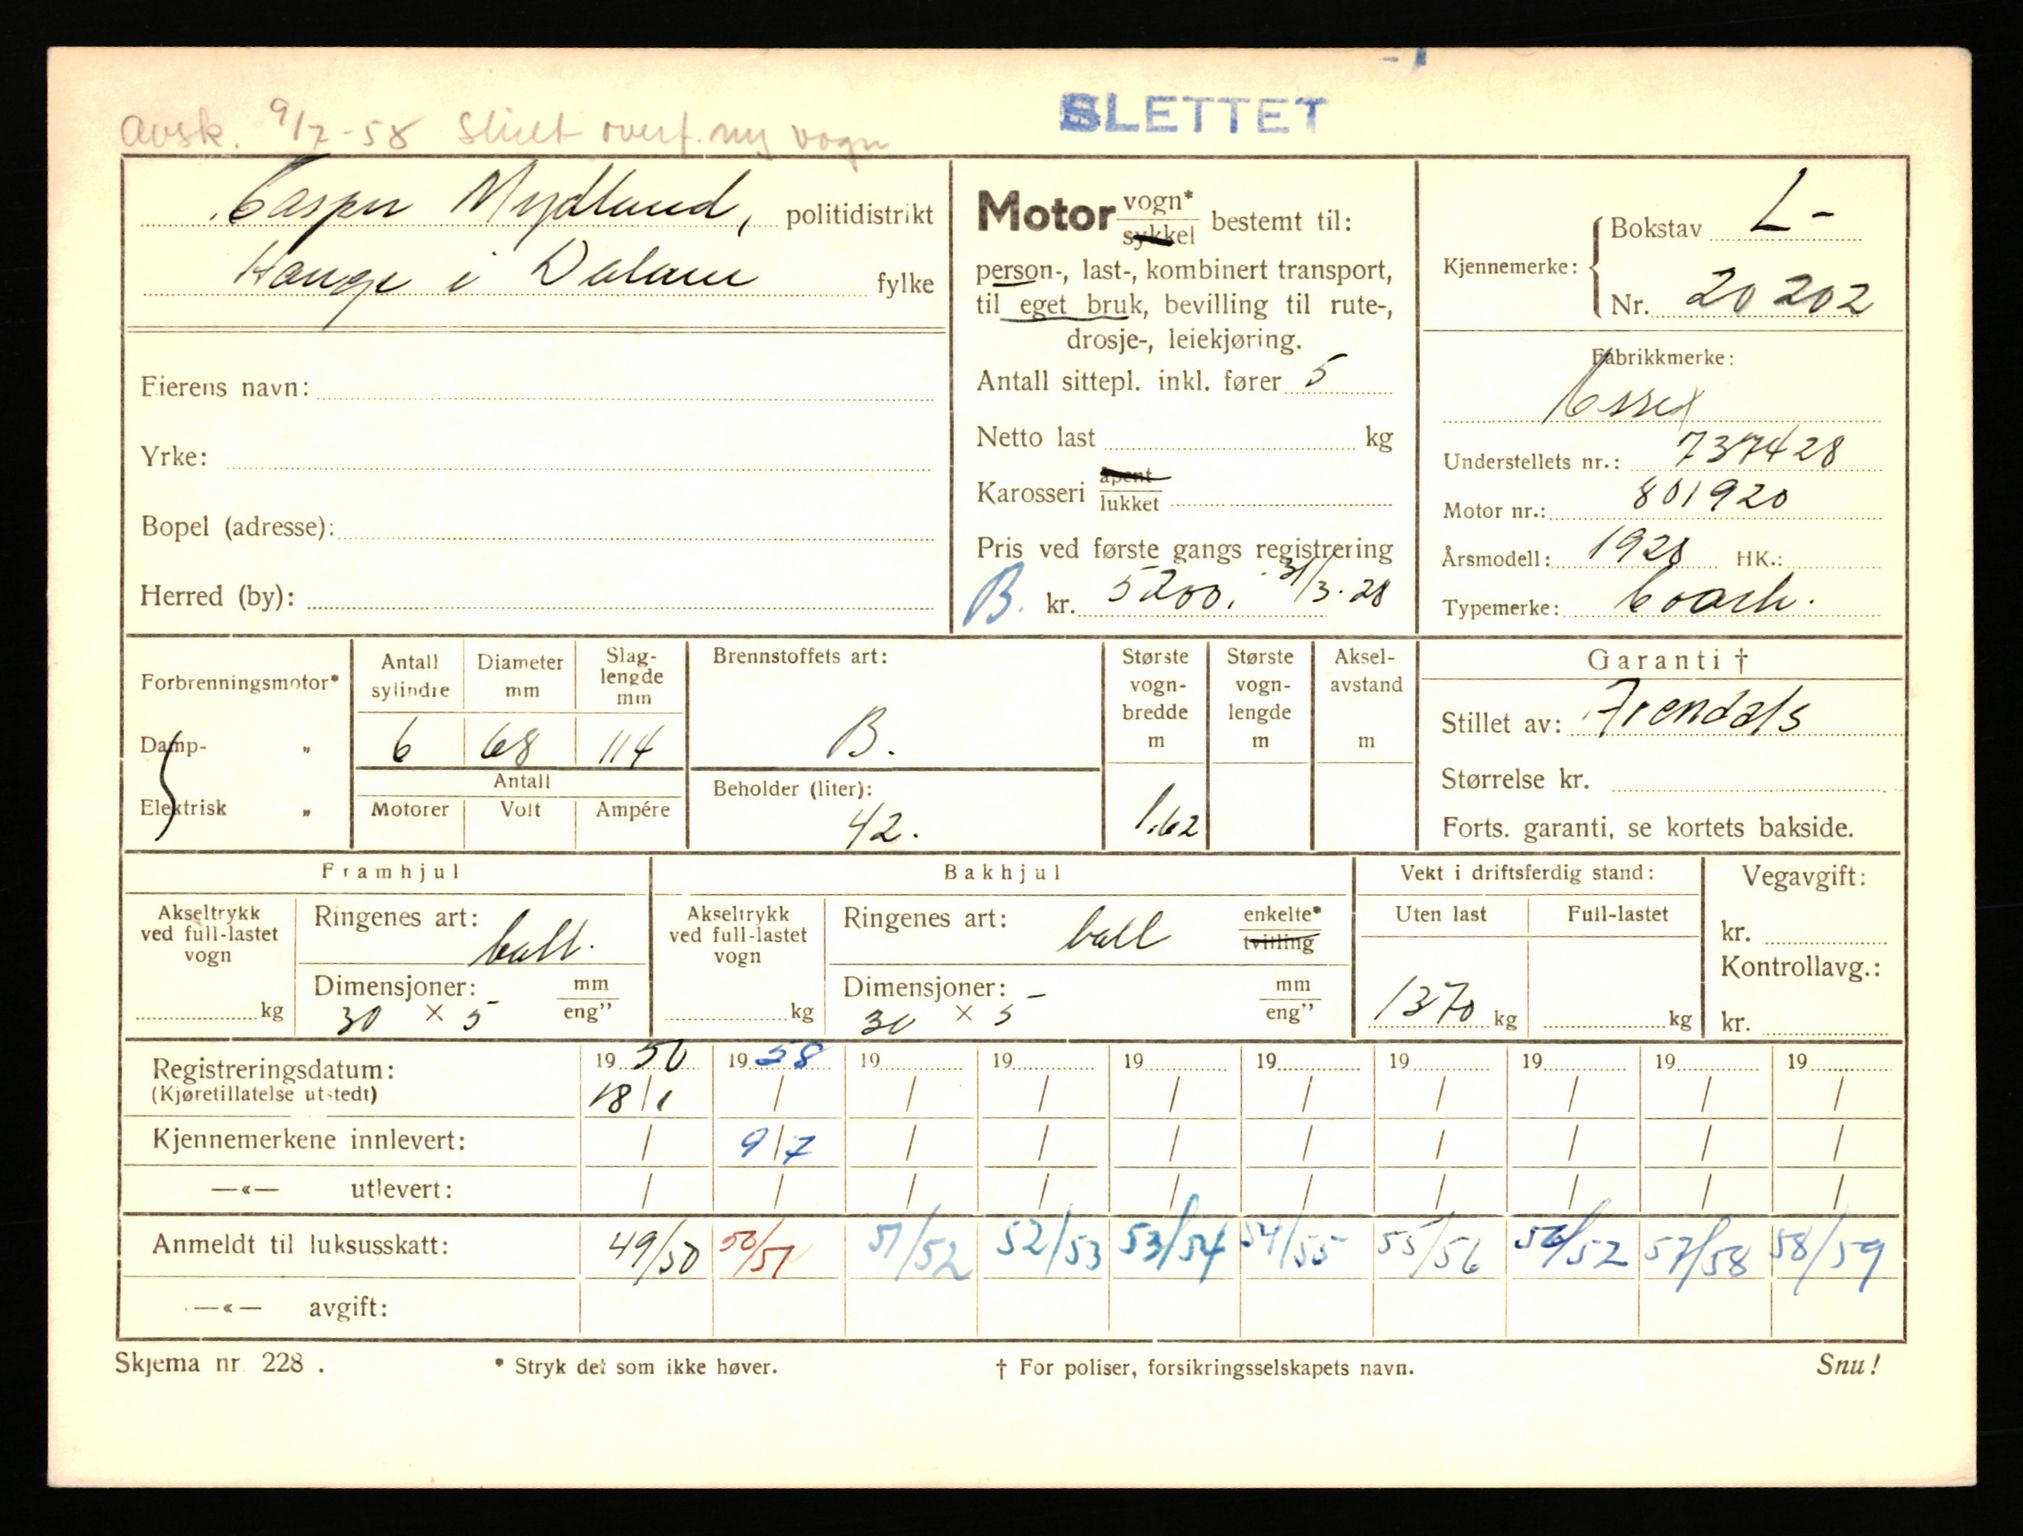 SLETTET
Avsk. 9/7-58 Skilt overf. ny vogn
Casper Mydland, politidistrikt
Hauge i Dalane fylke
Eierens navn:
Yrke:
Bopel (adresse):
Herred (by):
Motor vogn* sykkel bestemt til:
person-, last-, kombinert transport,
til eget bruk, bevilling til rute-,
drosje-, leiekjøring.
Antall sittepl. inkl. fører 5
Netto last kg
Karosseri åpent lukket
Pris ved første gangs registrering
B. kr. 5200, 31/3.28
Kjennemerke: Bokstav L-
Nr. 20202
Fabrikkmerke:
Essex
Understellets nr.: 737428
Motor nr.: 801920
Årsmodell: 1928 HK.:
Typemerke: Coach.
Forbrenningsmotor*
Damp- "
Elektrisk "
Antall sylindre 6
Diameter mm 68
Slaglengde mm 114
Antall
Motorer Volt Ampére
Brennstoffets art:
B.
Beholder (liter):
42.
Største vognbredde m 1.62
Største vognlengde m
Akselavstand m
Garanti †
Stillet av: Arendals
Størrelse kr.
Forts. garanti, se kortets bakside.
Framhjul
Akseltrykk ved full-lastet vogn kg
Ringenes art: ball.
Dimensjoner: mm eng"
30 × 5
Bakhjul
Akseltrykk ved full-lastet vogn kg
Ringenes art: ball enkelte* tvilling
Dimensjoner: mm eng"
30 × 5
Vekt i driftsferdig stand:
Uten last Full-lastet
1370 kg kg
Vegavgift:
kr.
Kontrollavg.:
kr.
Registreringsdatum: 19 50 19 58 19 19 19 19 19 19 19 19
(Kjøretillatelse utstedt) 18/1 / / / / / / / / /
Kjennemerkene innlevert: / 9/7 / / / / / / / /
—«— utlevert: / / / / / / / / / /
Anmeldt til luksusskatt: 49/50 50/51 51/52 52/53 53/54 54/55 55/56 56/57 57/58 58/59
—«— avgift:
Skjema nr. 228. * Stryk det som ikke høver. † For poliser, forsikringsselskapets navn. Snu!